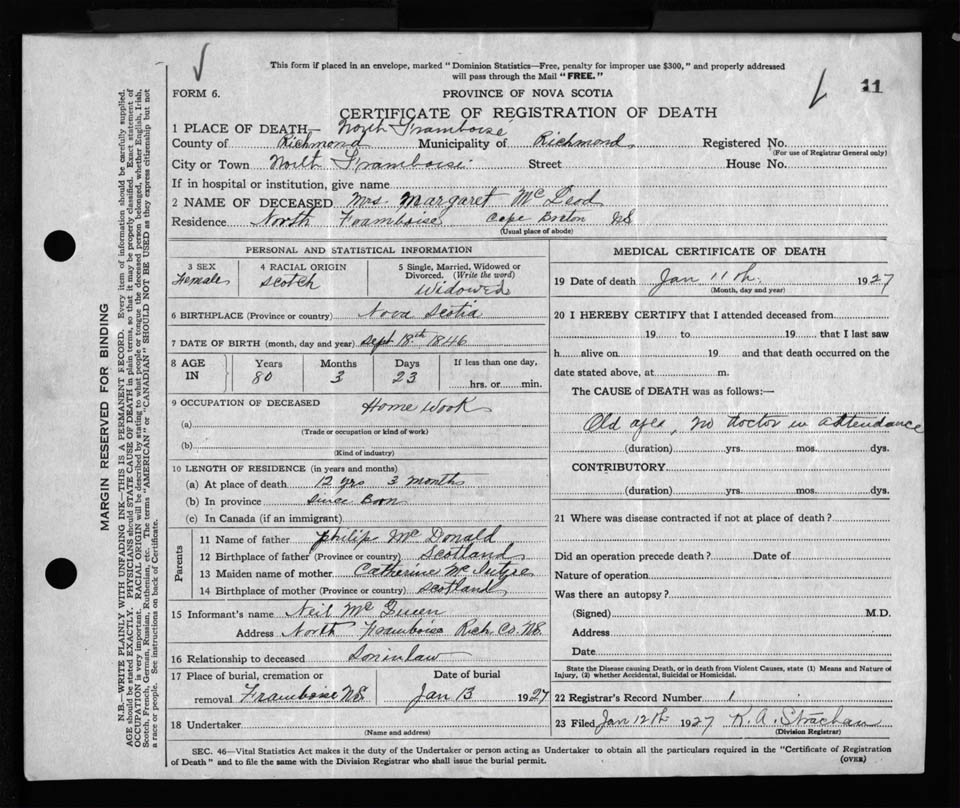 This form if placed in an envelope, marked "Dominion Statistics—Free, penalty for improper use $300," and properly addressed
will pass through the Mail "FREE."
FORM 6.
PROVINCE OF NOVA SCOTIA
11
CERTIFICATE OF REGISTRATION OF DEATH
1 PLACE OF DEATH— North Framboise
County of Richmond Municipality of Richmond Registered No.
(For use of Registrar General only)
City or Town North Framboise Street House No.
If in hospital or institution, give name
2 NAME OF DECEASED Mrs Margaret McLeod
Residence North Framboise Cape Breton NS
(Usual place of abode)
PERSONAL AND STATISTICAL INFORMATION
3 SEX Female
4 RACIAL ORIGIN Scotch
5 Single, Married, Widowed or Divorced. (Write the word) Widowed
6 BIRTHPLACE (Province or country) Nova Scotia
7 DATE OF BIRTH (month, day and year) Sept 18th 1846
8 AGE IN Years 80 Months 3 Days 23 If less than one day, hrs. or min.
9 OCCUPATION OF DECEASED Home Work
(a)
(Trade or occupation or kind of work)
(b)
(Kind of industry)
10 LENGTH OF RESIDENCE (in years and months)
(a) At place of death 12 yrs 3 months
(b) In province since Born
(c) In Canada (if an immigrant)
Parents
11 Name of father Philip McDonald
12 Birthplace of father (Province or country) Scotland
13 Maiden name of mother Catherine
14 Birthplace of mother (Province or country) Scotland
15 Informant's name Neil
Address North Framboise Rich. Co. NS.
16 Relationship to deceased Soninlaw
17 Place of burial, cremation or removal Framboise NS. Date of burial Jan 13 1927
18 Undertaker
(Name and address)
MEDICAL CERTIFICATE OF DEATH
19 Date of death Jan 11th 1927
(Month, day and year)
20 I HEREBY CERTIFY that I attended deceased from
19 to 19 that I last saw
h alive on 19 and that death occurred on the
date stated above, at m.
The CAUSE of DEATH was as follows:—
Old age, no doctor in attendance
(duration) yrs. mos. dys.
CONTRIBUTORY
(duration) yrs. mos. dys.
21 Where was disease contracted if not at place of death?
Did an operation precede death? Date of
Nature of operation
Was there an autopsy?
(Signed) M.D.
Address
Date
State the Disease causing Death, or in death from Violent Causes, state (1) Means and Nature of
Injury, (2) whether Accidental, Suicidal or Homicidal.
22 Registrar's Record Number 1
23 Filed Jan 12th 1927 K. A. Strachan
(Division Registrar)
SEC. 46—Vital Statistics Act makes it the duty of the Undertaker or person acting as Undertaker to obtain all the particulars required in the "Certificate of Registration
of Death" and to file the same with the Division Registrar who shall issue the burial permit.
(OVER)
MARGIN RESERVED FOR BINDING
N.B.—WRITE PLAINLY WITH UNFADING INK—THIS IS A PERMANENT RECORD. Every item of information should be carefully supplied.
AGE should be stated EXACTLY. PHYSICIANS should STATE CAUSE OF DEATH in plain terms, so that it may be properly classified. Exact statement of
OCCUPATION is very important. RACIAL ORIGIN will be described by stating to what people or tongue the deceased person belonged, whether English, Irish,
Scotch, French, German, Russian, Ruthenian, etc. The terms "AMERICAN" or "CANADIAN" SHOULD NOT BE USED as they express citizenship but not
a race or people. See instructions on back of Certificate.